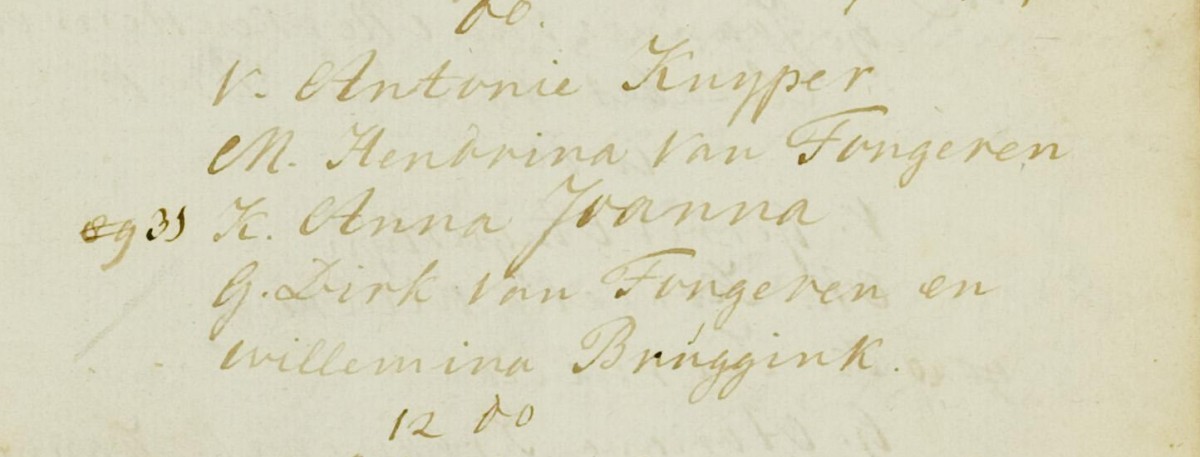 do.
V. Antonie Kuyper
M. Hendrina van Fongeren
31 K. Anna Joanna
G. Dirk van Fongeren en
willemina Brúggink.
12 do